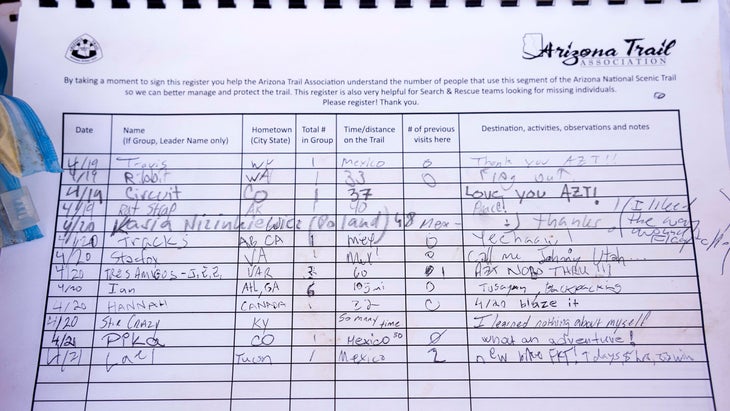 Arizona Trail
ASSOCIATION
By taking a moment to sign this register you help the Arizona Trail Association understand the number of people that use this segment of the Arizona National Scenic Trail
so we can better manage and protect the trail. This register is also very helpful for Search & Rescue teams looking for missing individuals.
Please register! Thank you.
Date Name (If Group, Leader Name only) Hometown (City State) Total # in Group Time/distance on the Trail # of previous visits here Destination, activities, observations and notes
4/19 Travis WY 1 Mexico 0 Thank you AZT!!
4/19 Ribbit WA 1 33 0 out
4/19 Circuit CO 1 37 Love you AZT!
4/19 Rat Strap AK 1 40 Peace!
4/20 Kasia (Poland) 48 Mex - :) thanks I liked the way around
4/20 Tracks CA 1 Mex 0 Yeehaw
4/20 VA 1 Mex 0 Call me Johnny Utah...
4/20 TRES AMIGOS - J, Z, Z, VAR 3 60 1 AZT NOBO THRU!!!
4/20 Ian ATL, GA 6 105 mi 0 Tusayan, Backpacking
4/20 HANNAH CANADA 1 22 0 4/20 blaze it
4/20 She Crazy KY So many time I learned nothing about myself
4/21 Pika CO 1 Mexico so 0 what an adventure!
4/21 Lael Tucon 1 Mexico 2 new bike FKT! 7 days, 8 hrs, 22 min